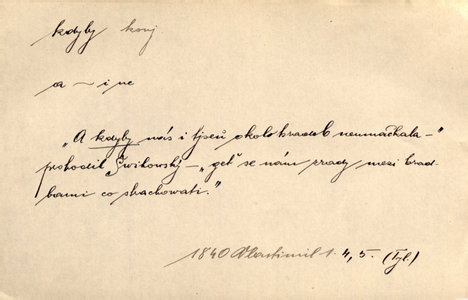 kdyby konj
a ~ i ne
„A kdyby nás i tjseň okolo hradeb nemačkala –"
prohodil Swikowský – „geť se nám zrady mezi hrad-
bami co strachowati."
1840 Vlastimil 1. 4, 5. (Tyl.)